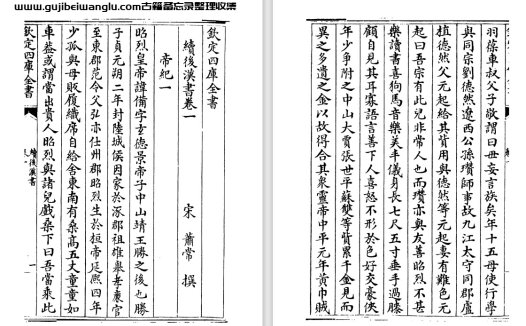 www.gujibeiwanglu.com古籍备忘录整理收集
欽定四庫全書
續後漢書卷一
宋 蕭常 撰
帝紀一
昭烈皇帝諱備字玄德景帝子中山靖王勝之後也勝
子貞元朔二年封陸城侯因家於涿郡祖雄舉孝廉官
至東郡范令父弘亦仕州郡昭烈生於桓帝延熹四年
少孤與母販履織席自給舍東南有桑高五丈童童如
車葢或謂當出貴人昭烈與諸兒戲桑下曰吾當乘此
欽定四庫全書
續後漢書
羽葆車叔父子敬謂曰毋妄言族矣年十五母使行學
與同宗劉德然遼西公孫瓚師事故九江太守同郡盧
植德然父元起給其貲用與德然等元起妻有難色元
起曰吾宗有此兒非常人也而瓚亦與友善昭烈不甚
樂讀書喜狗馬音樂美丰儀身長七尺五寸垂手過膝
顧自見其耳寡語言善下人喜怒不形於色好交豪俠
年少爭附之中山大賈張世平蘇雙等貲累千金見而
異之多遺之金以故得合其衆靈帝中平元年黄巾賊